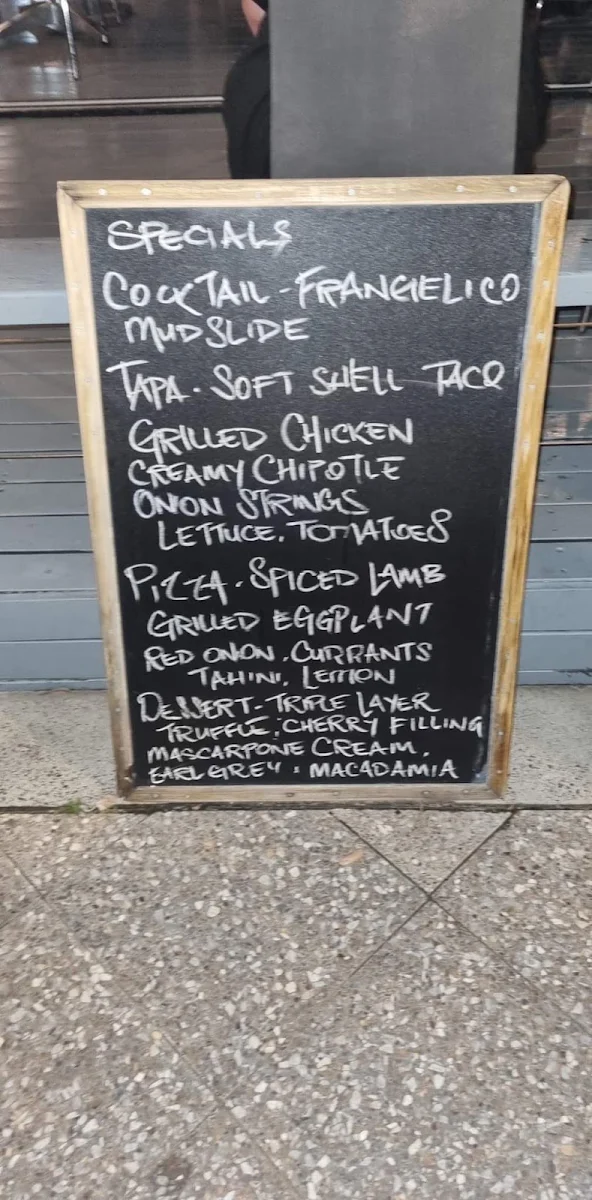 SPECIALS
COCKTAIL - FRANGELICO
MUDSLIDE
TAPA - SOFT SHELL TACO
GRILLED CHICKEN
CREAMY CHIPOTLE
ONION STRINGS
LETTUCE, TOMATOES
PIZZA - SPICED LAMB
GRILLED EGGPLANT
RED ONION, CURRANTS
TAHINI, LEMON
DESSERT - TRIPLE LAYER
TRUFFLE, CHERRY FILLING
MASCARPONE CREAM,
EARL GREY, MACADAMIA